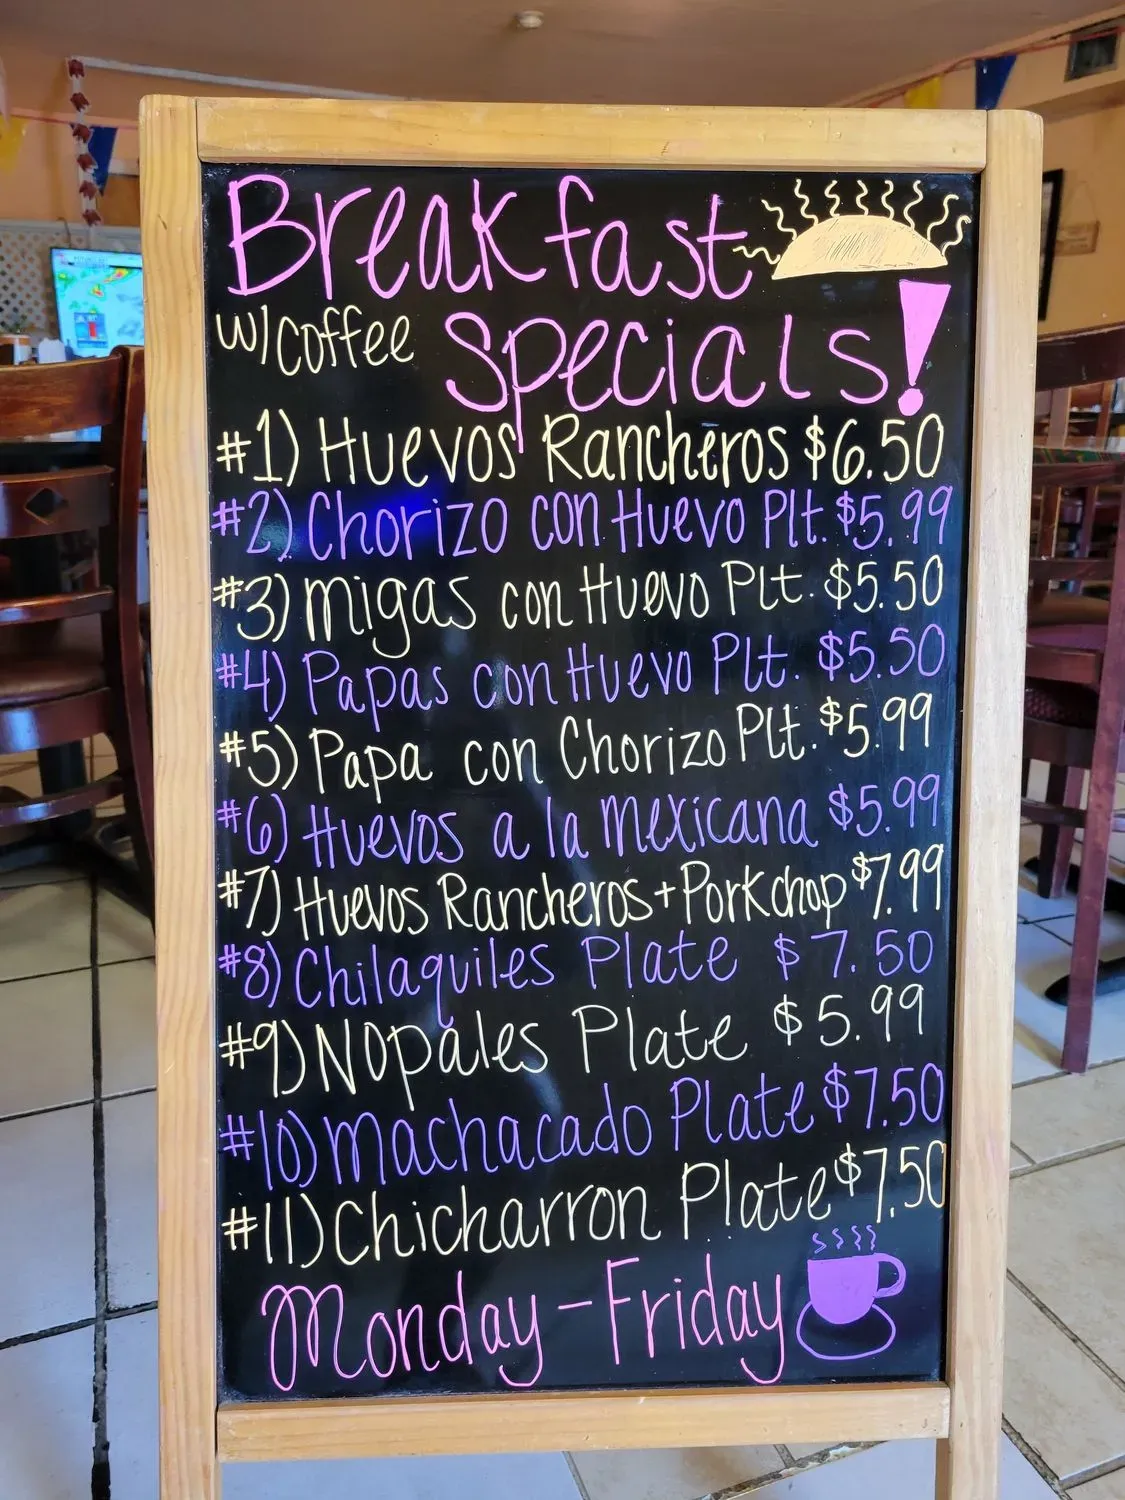 Breakfast
w/coffee Specials!
#1) Huevos Rancheros $6.50
#2) Chorizo con Huevo Plt. $5.99
#3) Migas con Huevo Plt. $5.50
#4) Papas con Huevo Plt. $5.50
#5) Papa con Chorizo Plt. $5.99
#6) Huevos a la Mexicana $5.99
#7) Huevos Rancheros + Porkchop $7.99
#8) Chilaquiles Plate $7.50
#9) Nopales Plate $5.99
#10) Machacado Plate $7.50
#11) Chicharron Plate $7.50
Monday - Friday